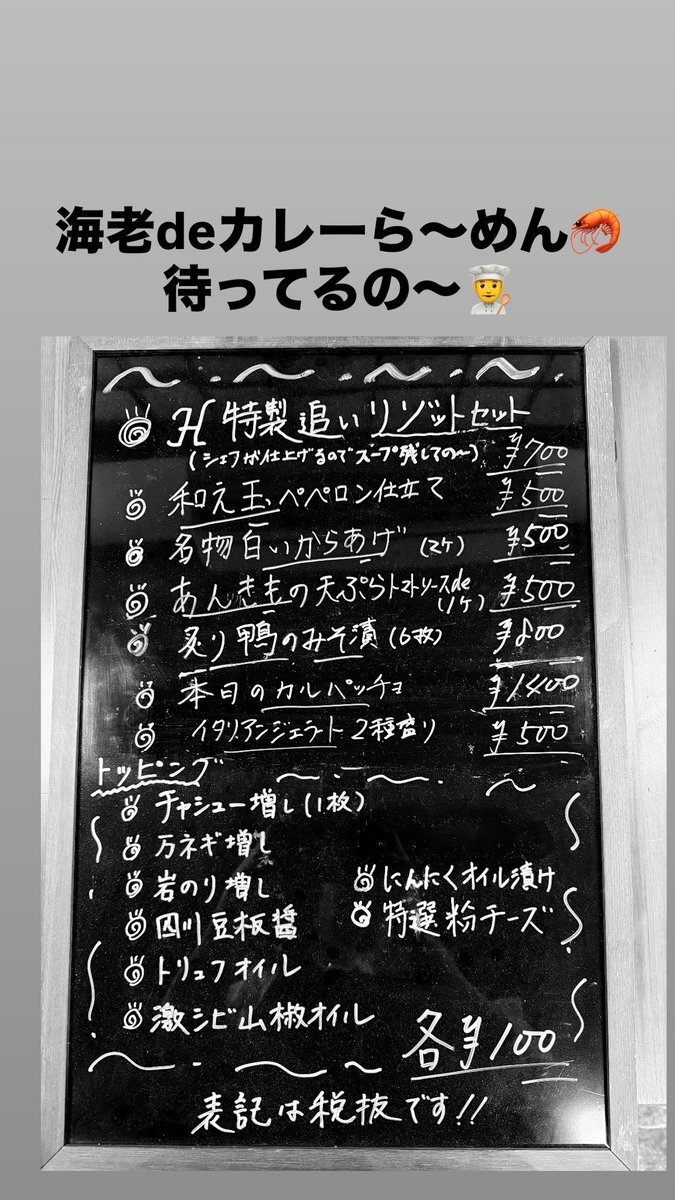 海老deカレーら〜めん🦐
待ってるの〜🧑‍🍳
H特製追いリゾットセット
(シェフが仕上げるのでスープ残しての〜) ¥700
和え玉ペペロン仕立て ¥500
名物白いからあげ (2ケ) ¥500
あんきもの天ぷらトマトソースde (1ケ) ¥500
炙り鴨のみそ漬 (6枚) ¥800
本日のカルパッチョ ¥1400
イタリアンジェラート 2種盛り ¥500
トッピング
チャシュー増し (1枚)
万ネギ増し
岩のり増し
四川豆板醤
トリュフオイル
激シビ山椒オイル
にんにくオイル漬け
特選粉チーズ
各¥100
表記は税抜です!!